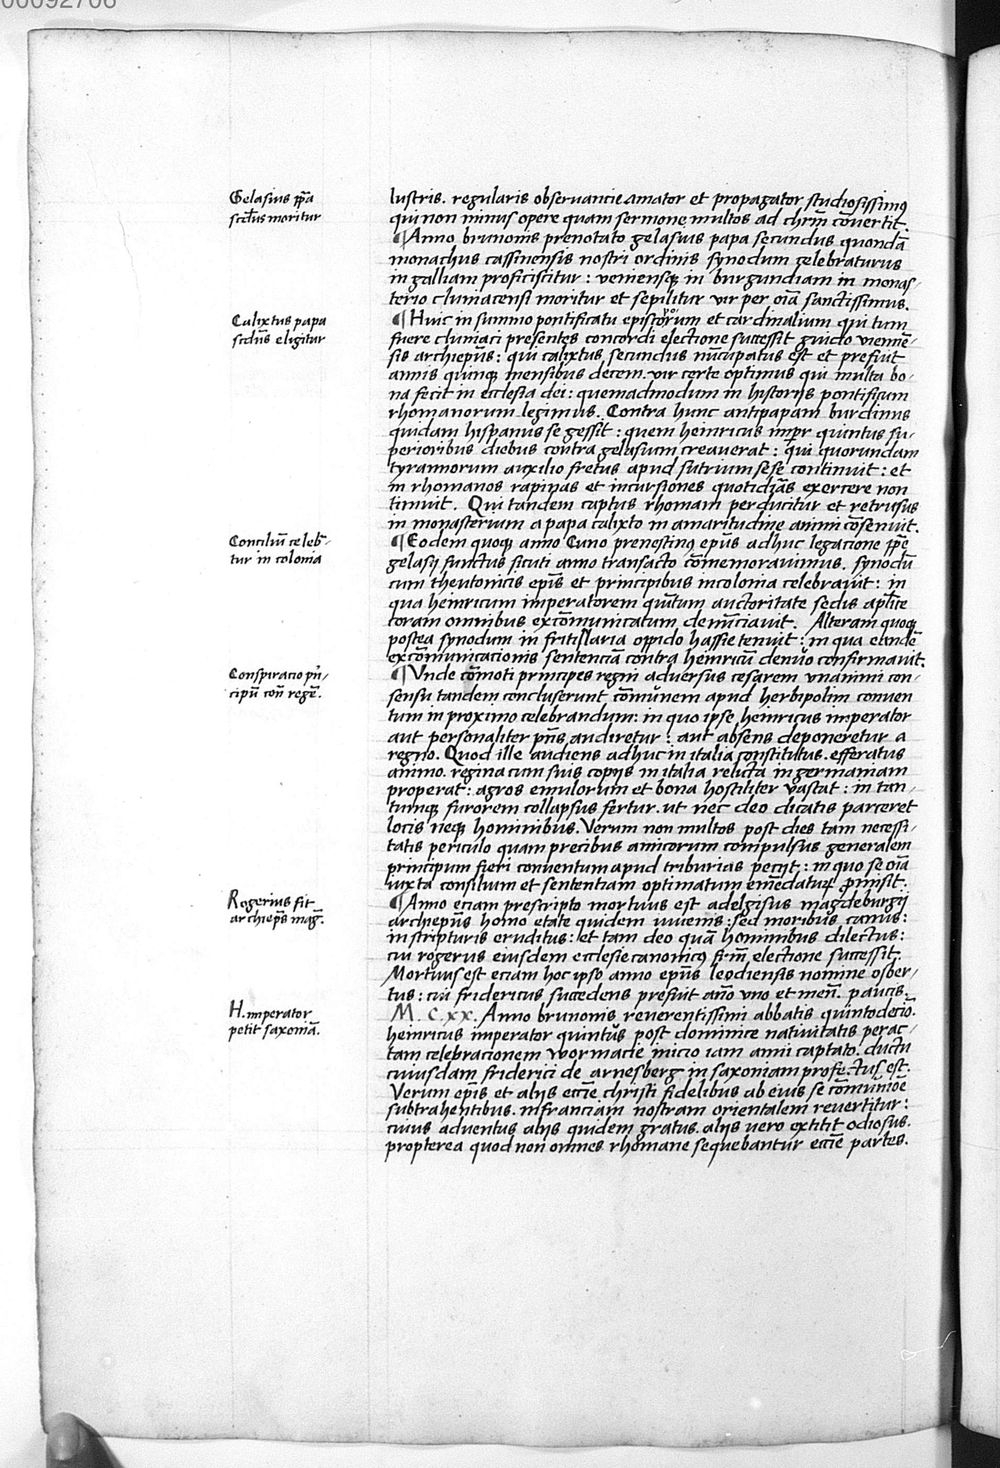 00092706
Gelasius pp̄a
sc̄dus moritur
lustris. regularis obseruancie amator et propagator studiosissimꝯ
qui non minus opere quam sermone multos ad chr̄m cōuertit.
¶ Anno brunonis prenotato gelasius papa secundus quondā
monachus cassinensis nostri ordinis synodum celebraturus
in galliam proficiscitur: veniensqꝫ in burgundiam in monas-
terio cluniacensi moritur et sepilitur vir per oīa sanctissimus.
Calixtus papa
scdūs eligitur
¶ Huic in summo pontificatu episcorum et cardinalium qui tum
fuere cluniaci presentes concordi electione successit guido viennē-
sis archiepūs: qui calixtus secundus nūcupatus est et prefuit
annis quinqꝫ mensibus decem. vir certe optimus qui multa bo-
na fecit in ecclesia dei: quemadmodum in historijs pontificum
rhomanorum legimus. Contra hunc antipapam burdinus
quidam hispanus se gessit: quem heinricus imꝑr quintus su-
perioribus diebus contra gelasium creauerat: qui quorundam
tyrannorum auxilio fretus apud sutrium sese continuit: et
in rhomanos rapinas et incursiones quotidiās exercere non
timuit. Qui tandem captus rhomam perducitur et retrusus
in monasterium a papa calixto in amaritudine animi cōsenuit.
Conciliū celeb̄-
tur in colonia
¶ Eodem quoqꝫ anno Cuno prenestinꝯ epūs adhuc legacione pp̄e
gelasij functus sicuti anno transacto cōmemorauimus. synodū
cum theutonicis epīs et principibus in colonia celebrauit: in
qua heinricum imperatorem quītum auctoritate sedis apl̄ice
coram omnibus excōmunicatum denūciauit. Alteram quoqꝫ
postea synodum in fritillaria oppido hassie tenuit: in qua eandē
excōmunicacionis sentenciā contra heinricū denūo confirmauit.
Conspiracio prī-
cipū con̄ regē.
¶ Vnde cōmoti principes regni aduersus cesarem vnanimi con-
sensu tandem concluserunt cōmūnem apud herbipolim conuen
tum in proximo celebrandum: in quo ipse heinricus imperator
aut personaliter pn̄s audiretur: aut absens deponeretur a
regno. Quod ille audiens adhuc in italia constitutus. efferatus
animo. regina cum suis copijs in italia relicta in germaniam
properat: agros emulorum et bona hostiliter vastat: in tan-
tumqꝫ furorem collapsus fertur. ut nec deo dicatis parceret
locis neqꝫ hominibus. Verum non multos post dies tam necessi-
tatis periculo quam precibus amicorum compulsus generalem
principum fieri conuentum apud triburias pecijt: in quo se oīa
iuxta consilium et sententiam optimatum emēdaturꝰ ꝓmisit.
Rogerius fit
archiep̄s maḡ.
¶ Anno eciam prescripto mortuus est adelgisus magdeburgij
archiepūs homo etate quidem iuuenis: sed moribus canus:
in scripturis eruditus: et tam deo quā hominibus dilectus:
cui rogerus eiusdem ecclesie canonicꝯ scd̄m electione successit.
Mortuus est eciam hoc ipso anno epūs leodiensis nomine osber-
tus: cui fridericus succedens prefuit año vno et men̄. paucis.
H. imperator
petit saxoniā.
M. C. xx. Anno brunonis reuerentissimi abbatis quintodecīo.
heinricus imperator quintus post dominice natiuitatis perac-
tam celebracionem wormacie inicio iam anni captato. ductu
cuiusdam friderici de arnesberg in saxoniam profectus est.
Verum epīs et alijs ecc̄ie christi fidelibus ab eius se cōmunīoē
subtrahentibus. in franciam nostram orientalem reuertitur:
cuius aduentus alijs quidem gratus. alijs uero extitit odiosus.
propterea quod non omnes rhomane sequebantur ecc̄ie partes.